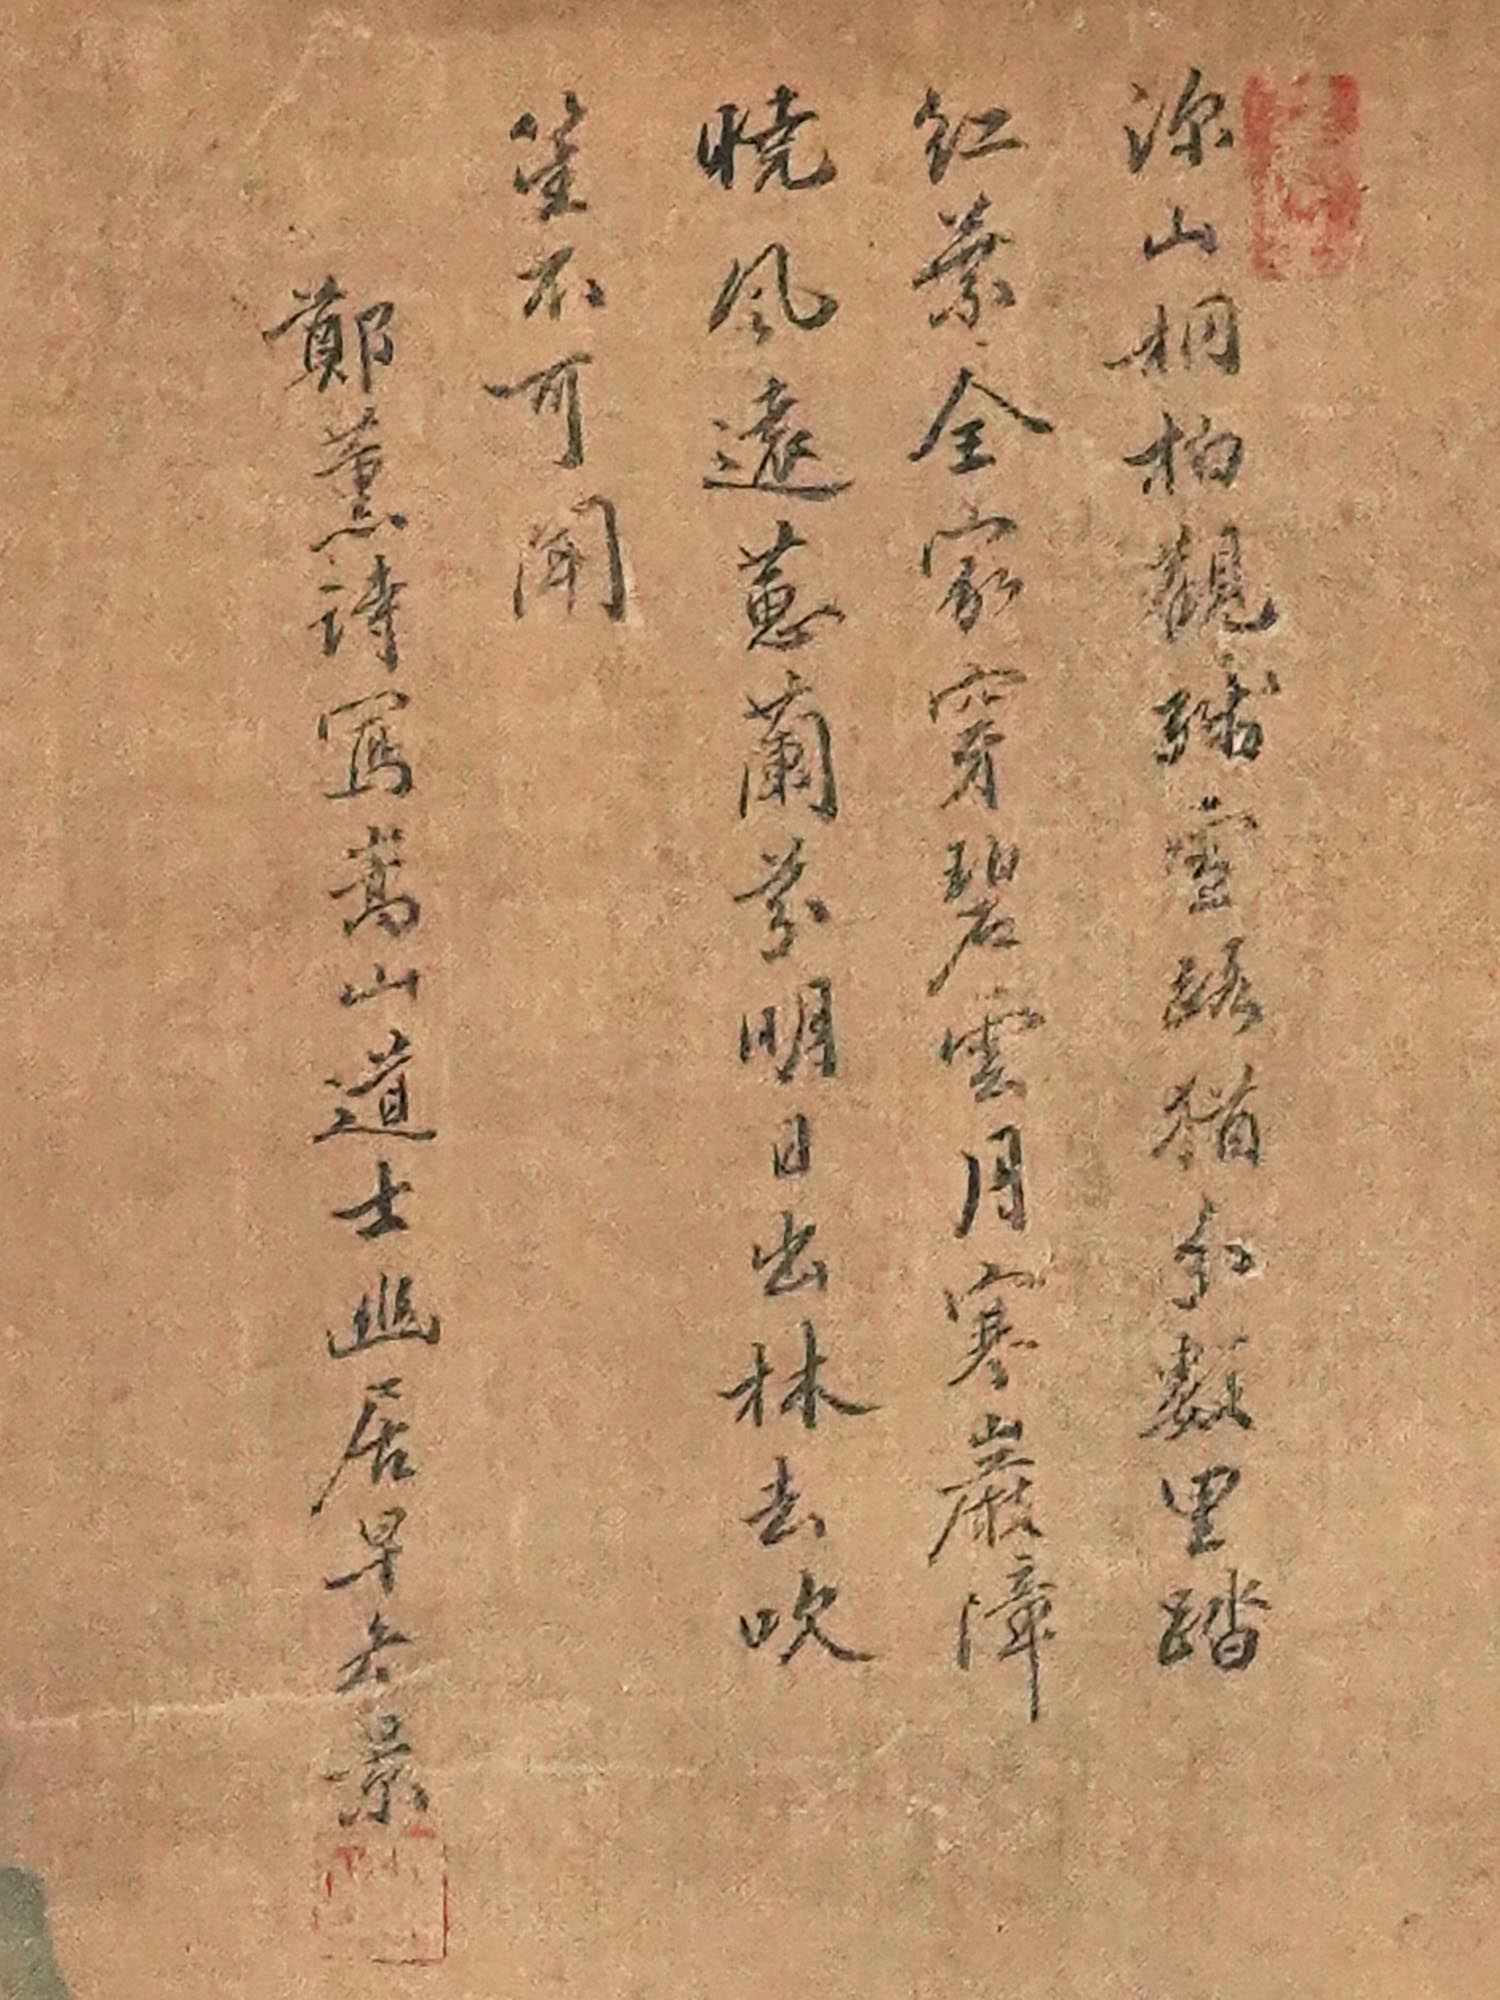 深山桐柏觀殘雪路猶分數里踏
紅葉全家穿碧雲月寒巖嶂
曉風遠蕙蘭芬明日出林去吹
笙不可聞
鄭薰詩寫嵩山道士幽居早冬景